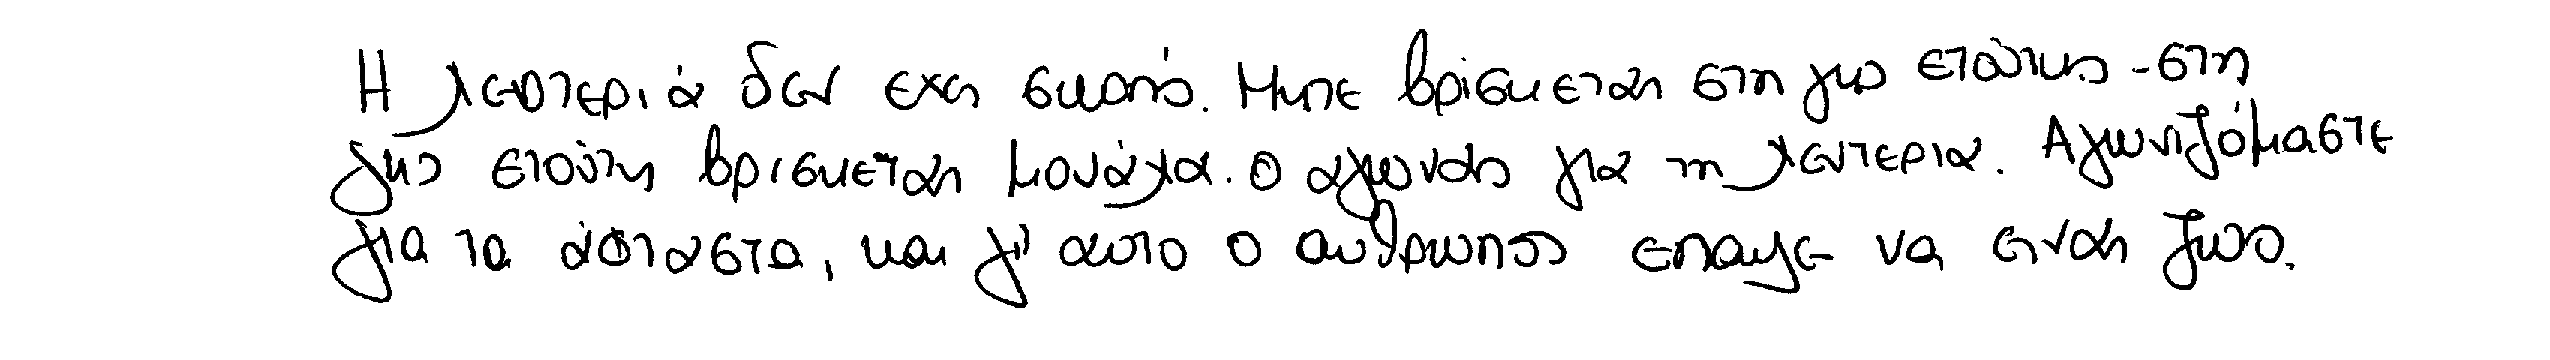 Η λευτεριά δεν εχει σκοπό. Μητε βρίσκεται στη γης ετούτης - στη
γης ετούτη βρισκεται μονάχα. ο αγωνας για τη λευτερια. Αγωνιζόμαστε
για τα άφταστα, και γι' αυτο ο ανθρωπος επαψε να ειναι ζωο.